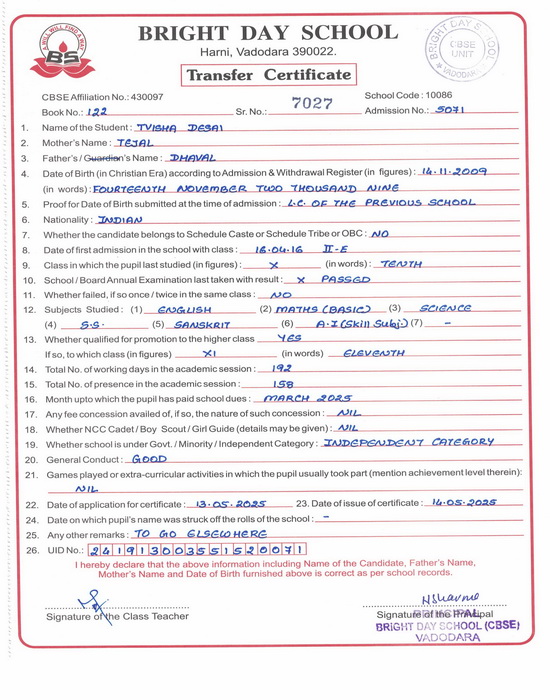 A WILL WILL FIND A WAY
BS
BRIGHT DAY SCHOOL
Harni, Vadodara 390022.
Transfer Certificate
BRIGHT DAY SCHOOL
CBSE
UNIT
VADODARA
CBSE Affiliation No.: 430097 School Code : 10086
Book No.: 122 Sr. No.: 7027 Admission No.: 5071
1. Name of the Student : TVISHA DESAI
2. Mother's Name : TEJAL
3. Father's / Guardian's Name : DHAVAL
4. Date of Birth (in Christian Era) according to Admission & Withdrawal Register (in figures) : 14.11.2009
(in words) : FOURTEENTH NOVEMBER TWO THOUSAND NINE
5. Proof for Date of Birth submitted at the time of admission : L.C. OF THE PREVIOUS SCHOOL
6. Nationality : INDIAN
7. Whether the candidate belongs to Schedule Caste or Schedule Tribe or OBC : NO
8. Date of first admission in the school with class : 16.04.16 II-E
9. Class in which the pupil last studied (in figures) : X (in words) : TENTH
10. School / Board Annual Examination last taken with result : X PASSED
11. Whether failed, if so once / twice in the same class : NO
12. Subjects Studied : (1) ENGLISH (2) MATHS (BASIC) (3) SCIENCE
(4) S.S. (5) SANSKRIT (6) A.I (Skill Subj.) (7) -
13. Whether qualified for promotion to the higher class YES
If so, to which class (in figures) XI (in words) ELEVENTH
14. Total No. of working days in the academic session : 192
15. Total No. of presence in the academic session : 158
16. Month upto which the pupil has paid school dues : MARCH 2025
17. Any fee concession availed of, if so, the nature of such concession : NIL
18. Whether NCC Cadet / Boy Scout / Girl Guide (details may be given) : NIL
19. Whether school is under Govt. / Minority / Independent Category : INDEPENDENT CATEGORY
20. General Conduct : GOOD
21. Games played or extra-curricular activities in which the pupil usually took part (mention achievement level therein):
NIL
22. Date of application for certificate : 13.05.2025 23. Date of issue of certificate : 14.05.2025
24. Date on which pupil's name was struck off the rolls of the school : -
25. Any other remarks : TO GO ELSEWHERE
26. UID No.: 241913003551520071
I hereby declare that the above information including Name of the Candidate, Father's Name,
Mother's Name and Date of Birth furnished above is correct as per school records.
Signature of the Class Teacher Signature of the Principal
PRINCIPAL
BRIGHT DAY SCHOOL (CBSE)
VADODARA